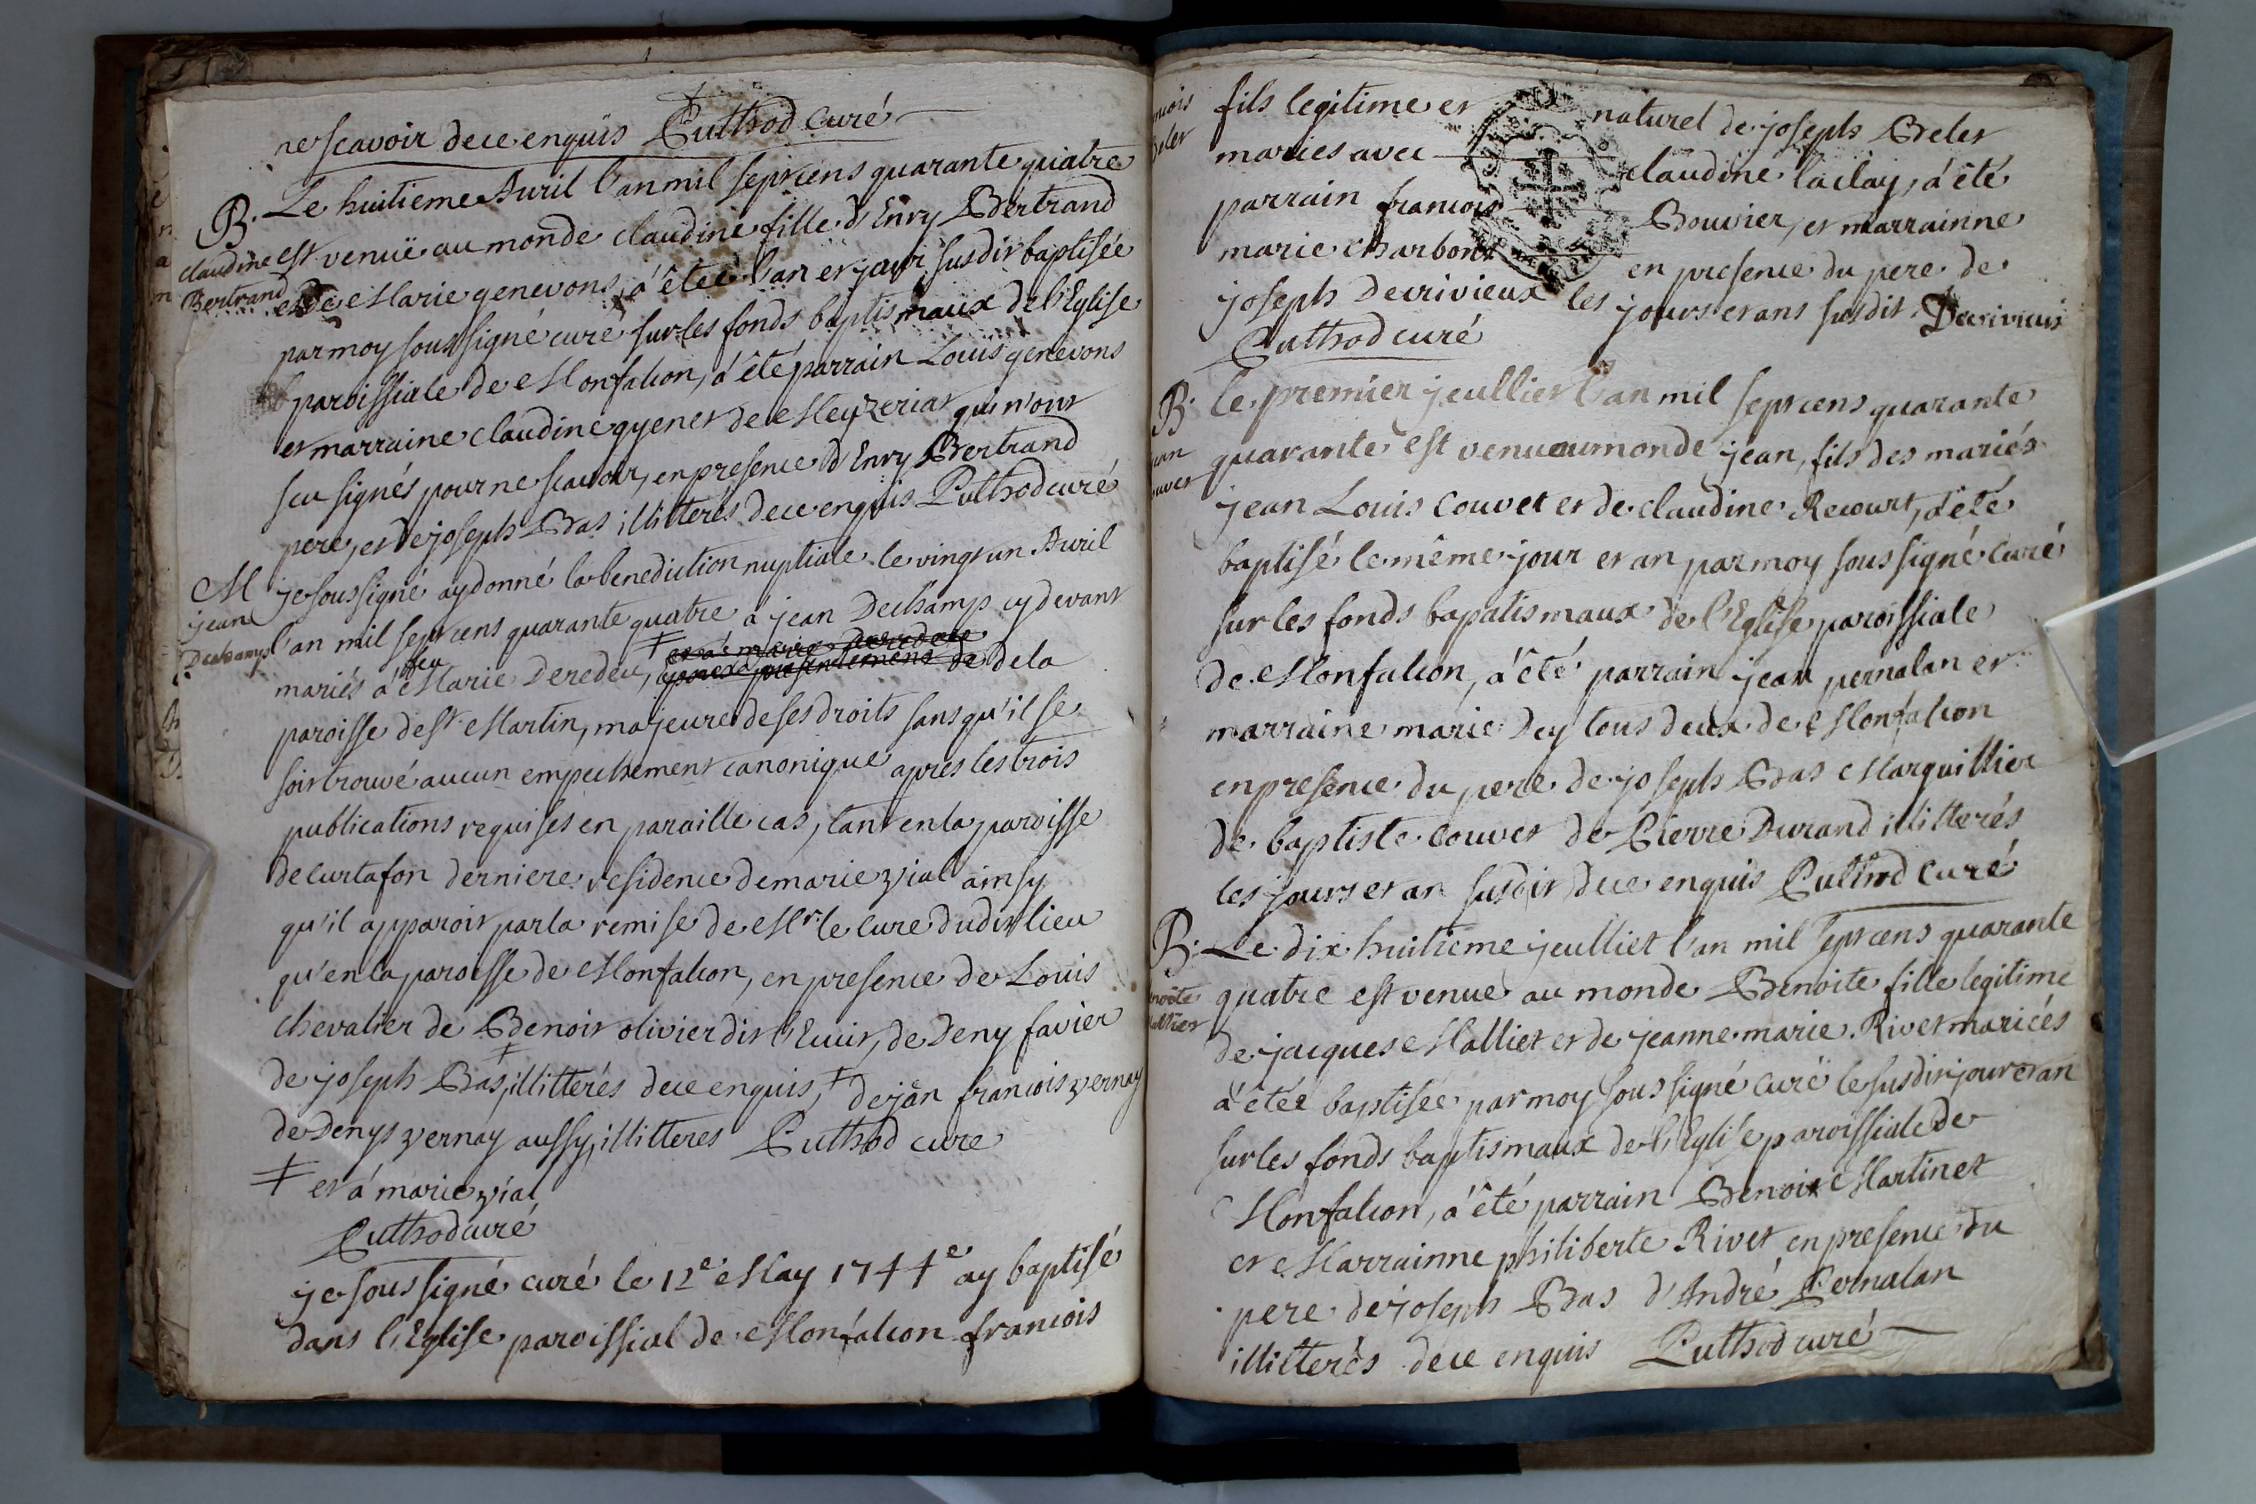 ne scavoir de ce enquis Puthod curé
B. Le huitieme Avril l'an mil sept cens quarante quatre
claudine Bertrand
est venuë au monde claudine fille d'Enry Bertrand
et de Marie genevons, a êtée l'an et jour susdit baptisée
par moy soussigné curé sur les fonds baptismaux de l'Eglise
paroissiale de Monfalcon, a été parrain Louis genevons
et marraine claudine gyenet de Meyzeriat qui n'ont
seu signés pour ne scavoir, en presence d'Enry Bertrand
pere, et de joseph Bas illitterés de ce enquis Puthod curé
M
jean Dechamps
je soussigné ay donné la benediction nuptiale le vingt un Avril
l'an mil sept cens quarante quatre a jean Dechamp cy devant
mariés a feu Marie Deredeu, ‡ de la
paroisse de St Martin, majeure de ses droits sans qu'il se
soit trouvé aucun empechement canonique apres les trois
publications requises en paraille cas, tant en la paroisse
de curtafon derniere residence de marie vial ainsy
qu'il apparoit par la remise de Mr le curé dudit lieu
qu'en la paroisse de Monfalcon, en presence de Louis
chevalier de Benoit olivier dit de Deny favier
de joseph Bas, illitterés de ce enquis, ‡ de jean francois vernay
de Denys vernay aussy illitteres Puthod curé
‡ et a marie vial
Puthod curé
je soussigné curé le 12e May 1744e ay baptisé
dans l'Eglise paroissial de Monfalcon francois
fils legitime et naturel de joseph Beler
maries avec claudine laclay, a été
parrain francois Bouvier, et marrainne
marie charbon en presence du pere de
joseph Decrivieux les jours et ans susdit Decrivieux
Puthod curé
B. le premier jeullier l'an mil sept cens quarante
quarante est venu au monde jean, fils des mariés
jean Louis Couvet et de claudine Recourt, a été
baptisé le même jour et an par moy soussigné curé
sur les fonds bapatismaux de l'Eglise paroissiale
de Monfalcon, a été parrain jean pernalan et
marraine marie Dey tous deux de Monfalcon
en presence du pere de joseph Bas Marguillier
de baptiste couvet de Pierre Durand illitterés
les jours et an susdit de ce enquis Puthod curé
B. Le dix huitieme jeulliet l'an mil sept cens quarante
quatre est venue au monde Benoite fille legitime
de jacques Malliet et de jeanne marie Rivet mariées
a étée baptisée par moy soussigné curé le susdit jour et an
sur les fonds baptismaux de l'Eglise paroissiale de
Monfalcon, a été parrain Benoit Martinet
et Marrainne philiberte Rivet en presence du
pere de joseph Bas d'André Pernalan
illitterés de ce enquis Puthod curé